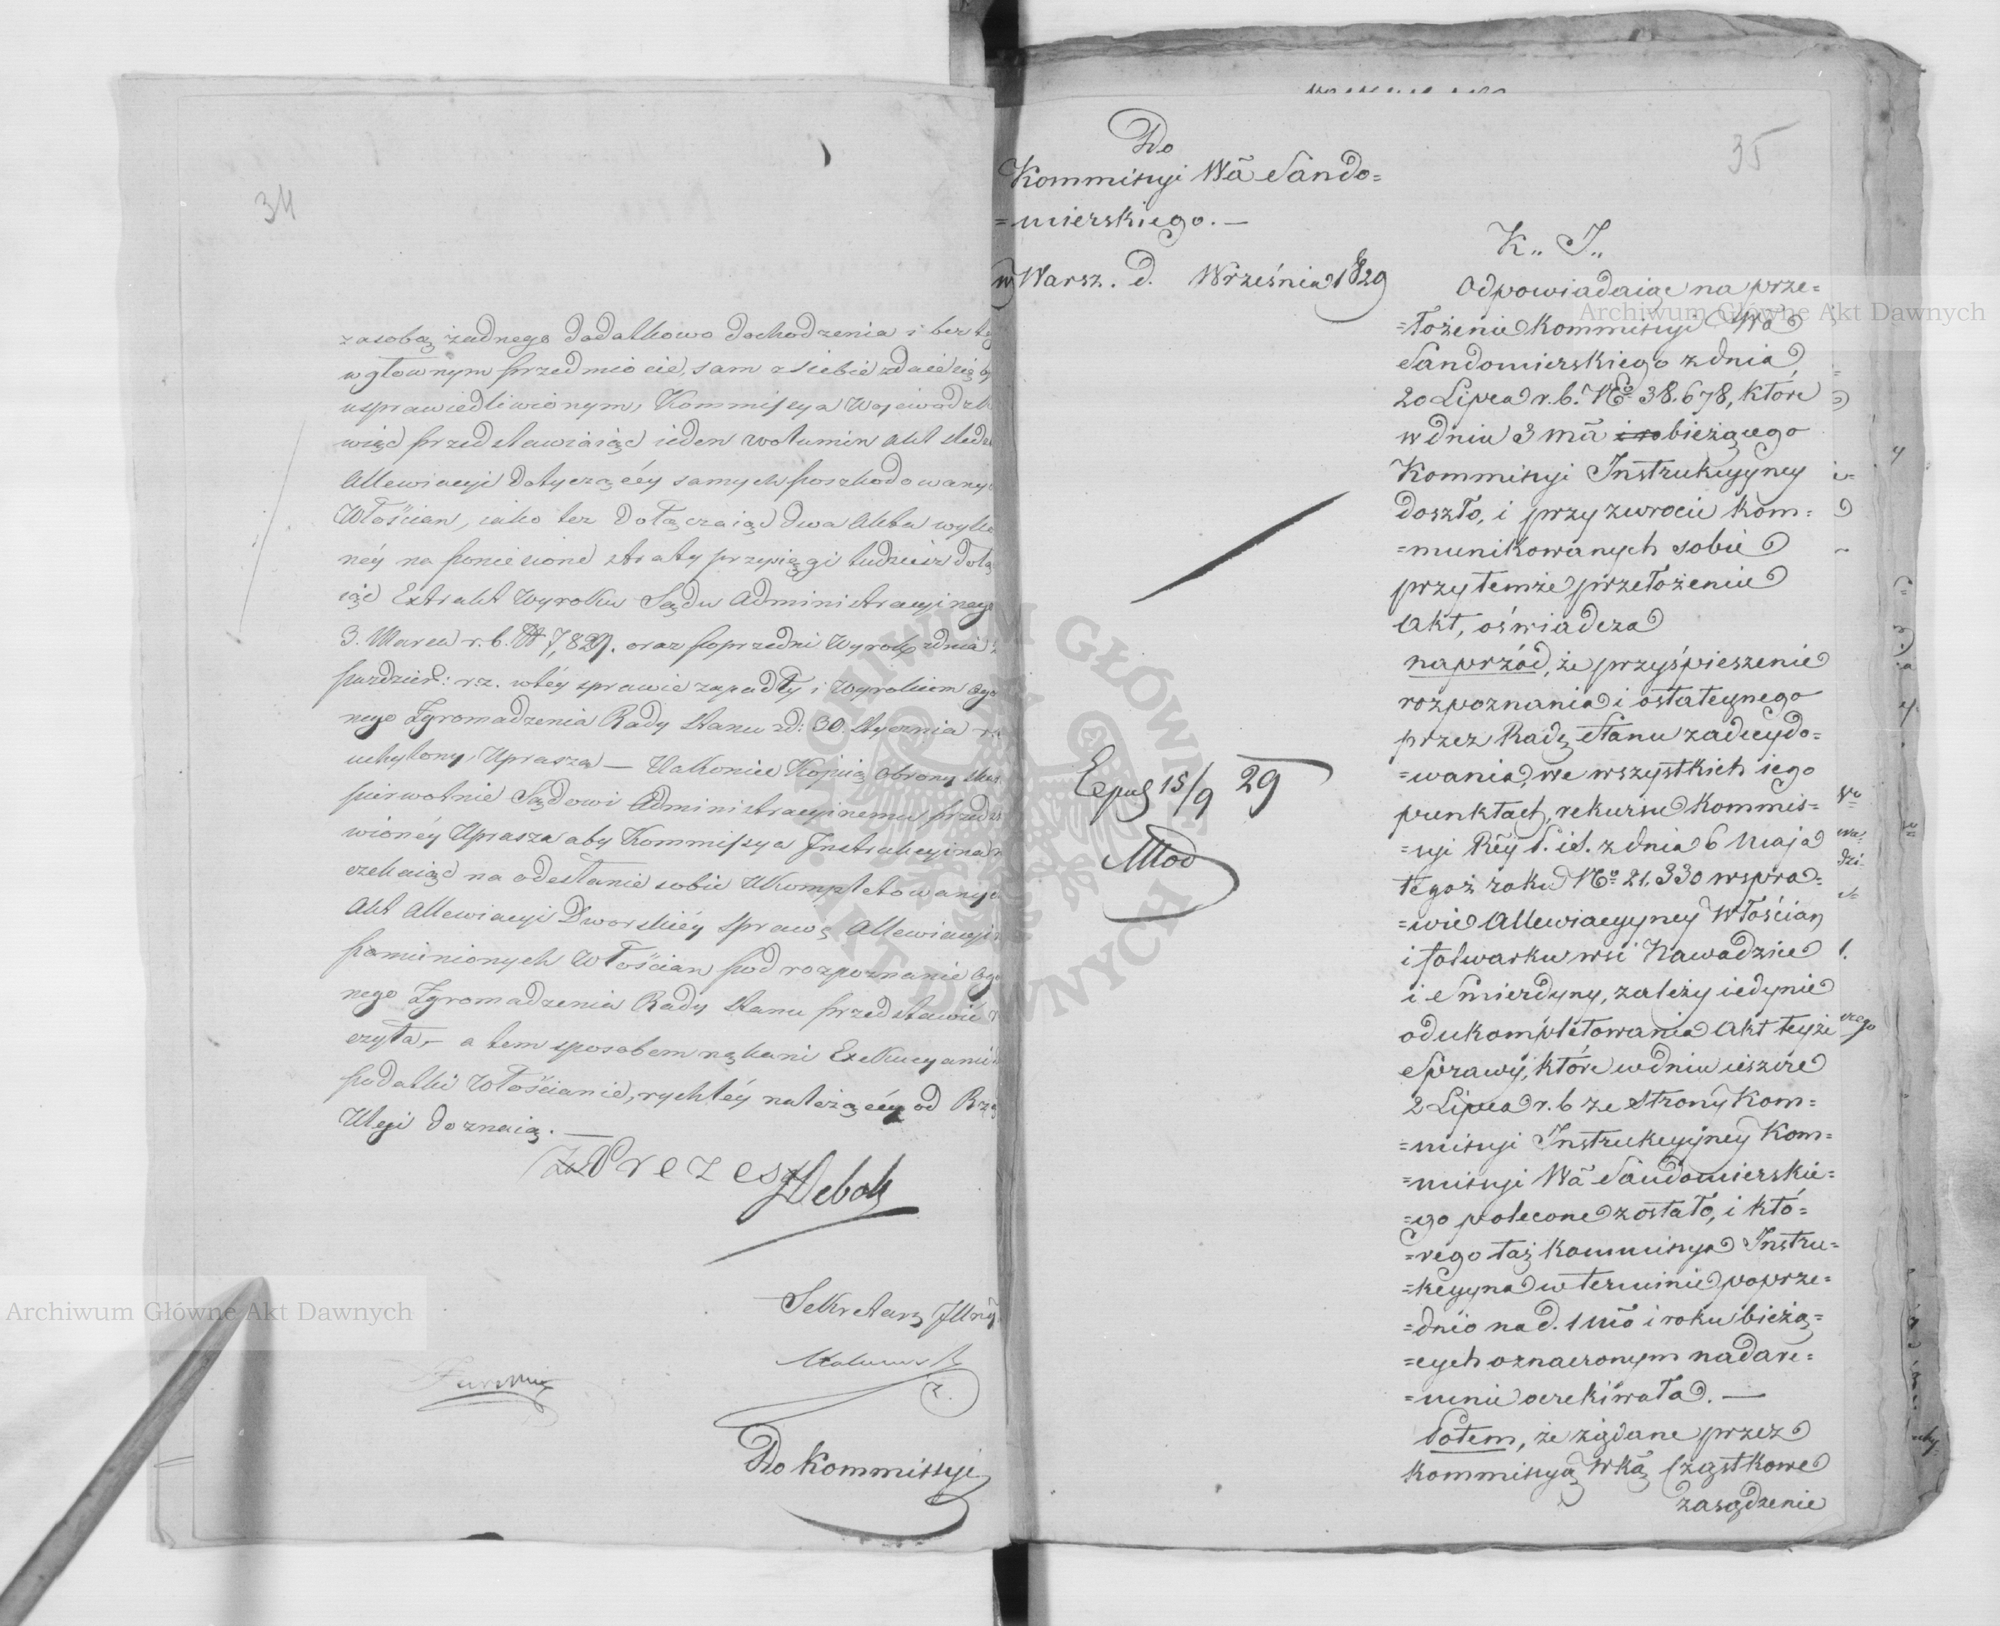 34
zasobą żadnego dodatkowo dochodzenia i bez
w głównym przedmiocie, sam z siebie zdaie się
usprawiedliwionym, Kommissya Wojewódz
więc przedstawiaiąc ieden wolumin Akt
Allewiacyi dotyczącéy samych poszkodowany
Włościan, iako też dołączaiąc dwa Akta
néy na poniesione straty przysięgi tudzież
iąc Extrakt Wyroku Sądu Administracyinego
3. Marca r. b. N 7,829. oraz poprzedni Wyrok z dnia
paździer: r. z. w téy sprawie zapadły i Wyrokiem Ogo
nego Zgromadzenia Rady Stanu z d: 30 Stycznia
uchylony, Uprasza — Wkońcu Kopią Obrony
pierwotnie Sądowi Administracyinemu
wionéy Uprasza aby Kommissya Instrukcyina
czekaiąc na odesłanie sobie Ukompletowany
Akt Allewiacyi Dworskiéy sprawę Allewiacyi
pomienionych Włościan pod rozpoznanie Ogo
nego Zgromadzenia Rady Stanu przedstawić
czyła, — a tem sposobem nękani Exekucyami
podatki Włościanie, rychléy należącéy od Rzą
Ulgi doznaią. —
Prezes
Sekretarz Jlny
Do Kommissyi
35
Do
Kommissyi Wa Sando=
=mierskiego. —
w Warsz. d. Września 1829
K. J.
Odpowiadaiąc na prze=
=łożenie Kommissyi Wa
Sandomierskiego z dnia
20 Lipca r. b. No 38.678, które
w dniu 3 ma i ro bieżącego
Kommissyi Instrukcyyney
doszło, i przy zwrocie kom=
=munikowanych sobie
przy temże przełożeniu
Akt, oświadcza
naprzód, że przyśpieszenie
rozpoznania i ostateynego
przez Radę Stanu zadecydo=
=wania, we wszystkich iego
punktach, rekursu Kommis=
=syi Rey S. i S. z dnia 6 Maja
tegoż roku No 21,330 w spra=
=wie Allewiacyyney Włościan
i folwarku wsi Nawodzice
i Smierdyny, zależy iedynie
od ukompletowania Akt teyże
Sprawy, które w dniu ieszcze
2 Lipca r. b ze Strony Kom=
=missyi Instrukcyyney Kom=
=missyi Wa Sandomierskie=
=go polecone zostało, i któ=
=rego taż Kommissya Instru=
=kcyyna w terminie poprze=
=dnio na d. 1 mo i roku bieżą=
=cych oznaczonym nadare=
=mnie oczekiwała. —
Potem, że żądane przez
Kommissyą Wką Cząstkowe
zasądzenie
Exped 15/9 29
Archiwum Główne Akt Dawnych
Archiwum Główne Akt Dawnych
ARCHIWUM GŁÓWNE
AKT DAWNYCH